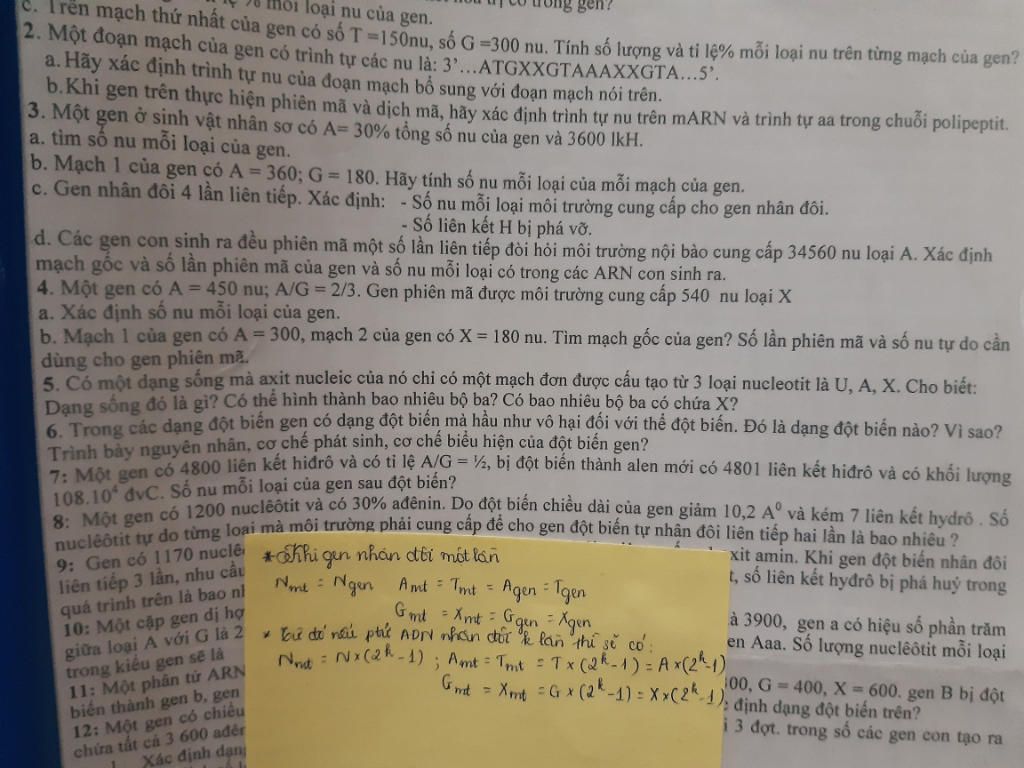 mỗi loại nu của gen.
c. Trên mạch thứ nhất của gen có số T =150nu, số G =300 nu. Tính số lượng và tỉ lệ% mỗi loại nu trên từng mạch của gen?
2. Một đoạn mạch của gen có trình tự các nu là: 3’…ATGXXGTAAAXXGTA…5’.
a. Hãy xác định trình tự nu của đoạn mạch bổ sung với đoạn mạch nói trên.
b.Khi gen trên thực hiện phiên mã và dịch mã, hãy xác định trình tự nu trên mARN và trình tự aa trong chuỗi polipeptit.
3. Một gen ở sinh vật nhân sơ có A= 30% tổng số nu của gen và 3600 lkH.
a. tìm số nu mỗi loại của gen.
b. Mạch 1 của gen có A = 360; G = 180. Hãy tính số nu mỗi loại của mỗi mạch của gen.
c. Gen nhân đôi 4 lần liên tiếp. Xác định: - Số nu mỗi loại môi trường cung cấp cho gen nhân đôi.
- Số liên kết H bị phá vỡ.
d. Các gen con sinh ra đều phiên mã một số lần liên tiếp đòi hỏi môi trường nội bào cung cấp 34560 nu loại A. Xác định
mạch gốc và số lần phiên mã của gen và số nu mỗi loại có trong các ARN con sinh ra.
4. Một gen có A = 450 nu; A/G = 2/3. Gen phiên mã được môi trường cung cấp 540 nu loại X
a. Xác định số nu mỗi loại của gen.
b. Mạch 1 của gen có A = 300, mạch 2 của gen có X = 180 nu. Tìm mạch gốc của gen? Số lần phiên mã và số nu tự do cần
dùng cho gen phiên mã.
5. Có một dạng sống mà axit nucleic của nó chỉ có một mạch đơn được cấu tạo từ 3 loại nucleotit là U, A, X. Cho biết:
Dạng sống đó là gì? Có thể hình thành bao nhiêu bộ ba? Có bao nhiêu bộ ba có chứa X?
6. Trong các dạng đột biến gen có dạng đột biến mà hầu như vô hại đối với thể đột biến. Đó là dạng đột biến nào? Vì sao?
Trình bày nguyên nhân, cơ chế phát sinh, cơ chế biểu hiện của đột biến gen?
7: Một gen có 4800 liên kết hiđrô và có tỉ lệ A/G = ½, bị đột biến thành alen mới có 4801 liên kết hiđrô và có khối lượng
108.10⁴ đvC. Số nu mỗi loại của gen sau đột biến?
8: Một gen có 1200 nuclêôtit và có 30% ađênin. Do đột biến chiều dài của gen giảm 10,2 A⁰ và kém 7 liên kết hydrô . Số
nuclêôtit tự do từng loại mà môi trường phải cung cấp để cho gen đột biến tự nhân đôi liên tiếp hai lần là bao nhiêu ?
9: Gen có 1170 nuclê xit amin. Khi gen đột biến nhân đôi
liên tiếp 3 lần, nhu cầu t, số liên kết hyđrô bị phá huỷ trong
quá trình trên là bao n
10: Một cặp gen dị hợ à 3900, gen a có hiệu số phần trăm
giữa loại A với G là 2 en Aaa. Số lượng nuclêôtit mỗi loại
trong kiểu gen sẽ là
11: Một phân tử ARN 00, G = 400, X = 600. gen B bị đột
biến thành gen b, gen định dạng đột biến trên?
12: Một gen có chiều i 3 đợt. trong số các gen con tạo ra
chứa tất cả 3 600 ađên
Xác định dạng
* Khi gen nhân đôi một lần
Nmt = Ngen Amt = Tmt = Agen = Tgen
Gmt = Xmt = Ggen = Xgen
* Từ đó nếu phtử ADN nhân đôi k lần thì sẽ có:
Nmt = N×(2ᵏ-1) ; Amt = Tmt = T×(2ᵏ-1) = A×(2ᵏ-1)
Gmt = Xmt = G×(2ᵏ-1) = X×(2ᵏ-1)